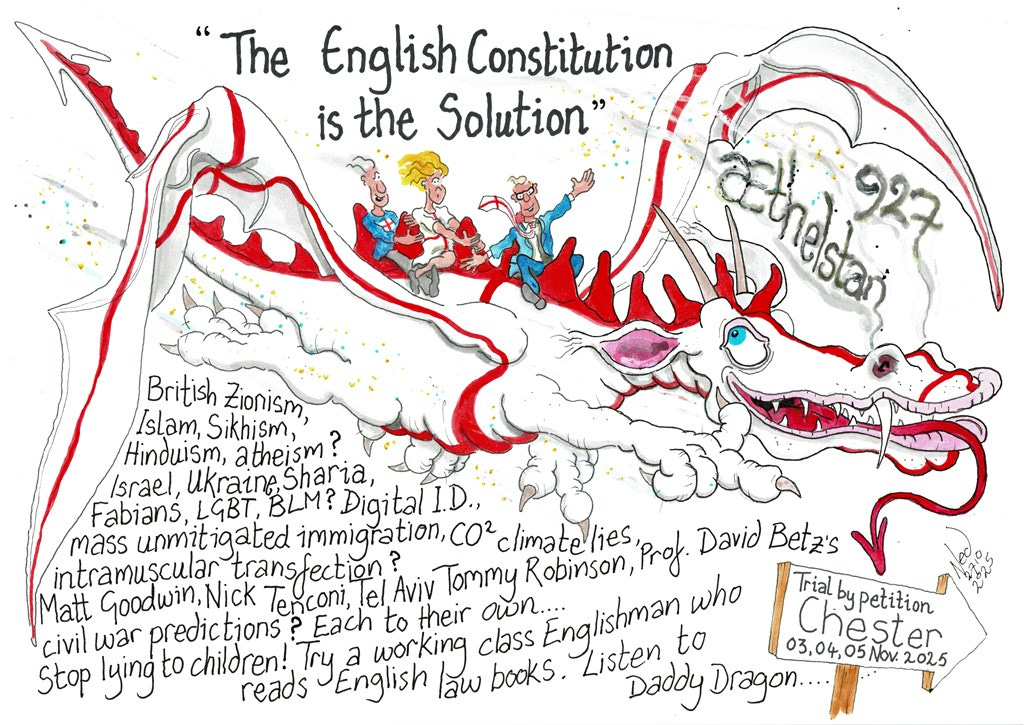 “The English Constitution
is the Solution”
æthelstan
927
British Zionism,
Islam, Sikhism,
Hinduism, atheism?
Israel, Ukraine, Sharia,
Fabians, LGBT, BLM? Digital I.D.,
mass unmitigated immigration, CO² climate lies,
intramuscular transfection?
Matt Goodwin, Nick Tenconi, Tel Aviv Tommy Robinson, Prof. David Betz's
civil war predictions? Each to their own....
Stop lying to children! Try a working class Englishman who
reads English law books. Listen to
Daddy Dragon....
2025
Trial by petition
Chester
03,04,05 Nov. 2025